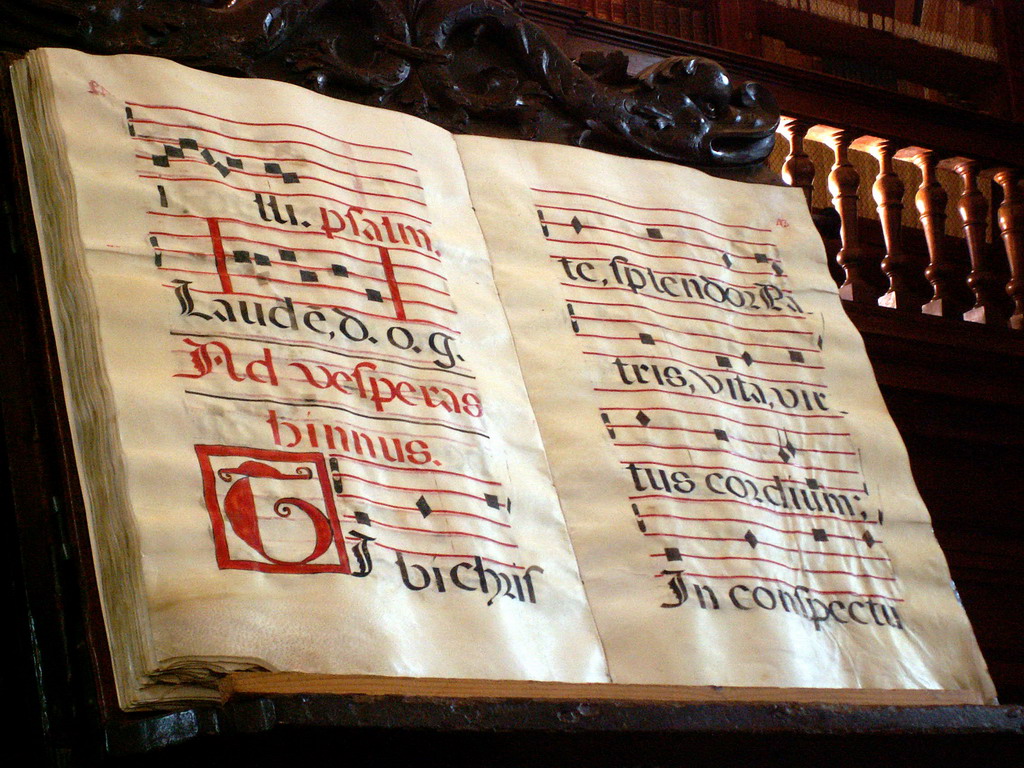 tti. psalm.
Laude, d. o. g.
Ad vesperas
hinnus.
TI bi chris
te, splendor Pa
tris, vita, vir
tus cordium;
In conspectu